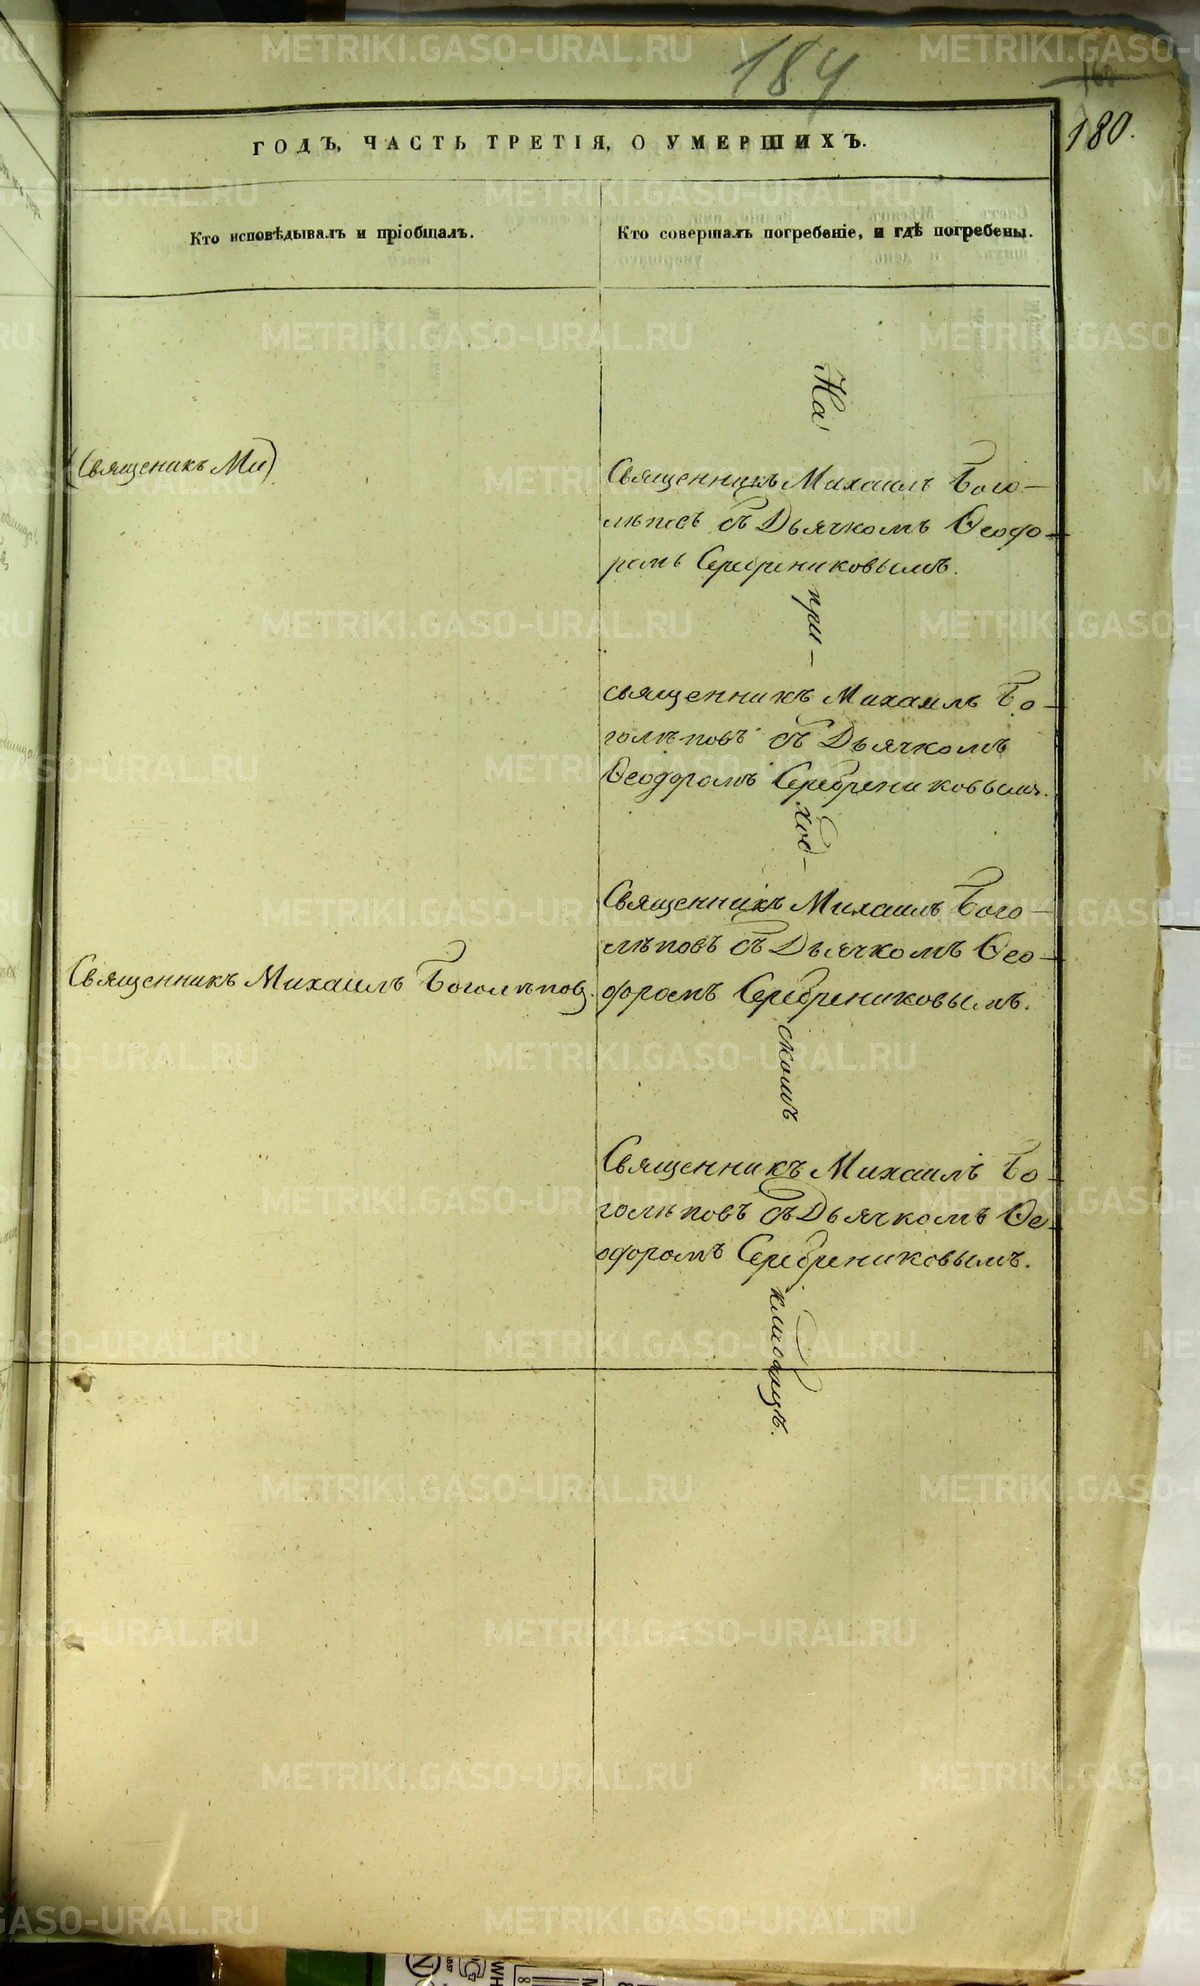 184
180.
ГОДЪ, ЧАСТЬ ТРЕТІЯ, О УМЕРШИХЪ.
Кто исповѣдывалъ и пріобщалъ.
Кто совершалъ погребеніе, и гдѣ погребены.
(Священикъ Ми)
Священникъ Михаилъ Бого-
лѣповъ съ Дьячкомъ Ѳеодо-
ромъ Серебрениковымъ.
священникъ Михаилъ Бо-
голѣповъ съ Дьячкомъ
Ѳеодоромъ Серебрениковымъ.
Священникъ Михаилъ Боголѣповъ.
Священникъ Михаилъ Бого-
лѣповъ съ Дьячкомъ Ѳео-
доромъ Серебрениковымъ.
Священникъ Михаилъ Бо-
голѣповъ съ Дьячкомъ Ѳе-
одоромъ Серебрениковымъ.
На
при-
ход-
скомъ
кладбищѣ.
METRIKI.GASO-URAL.RU